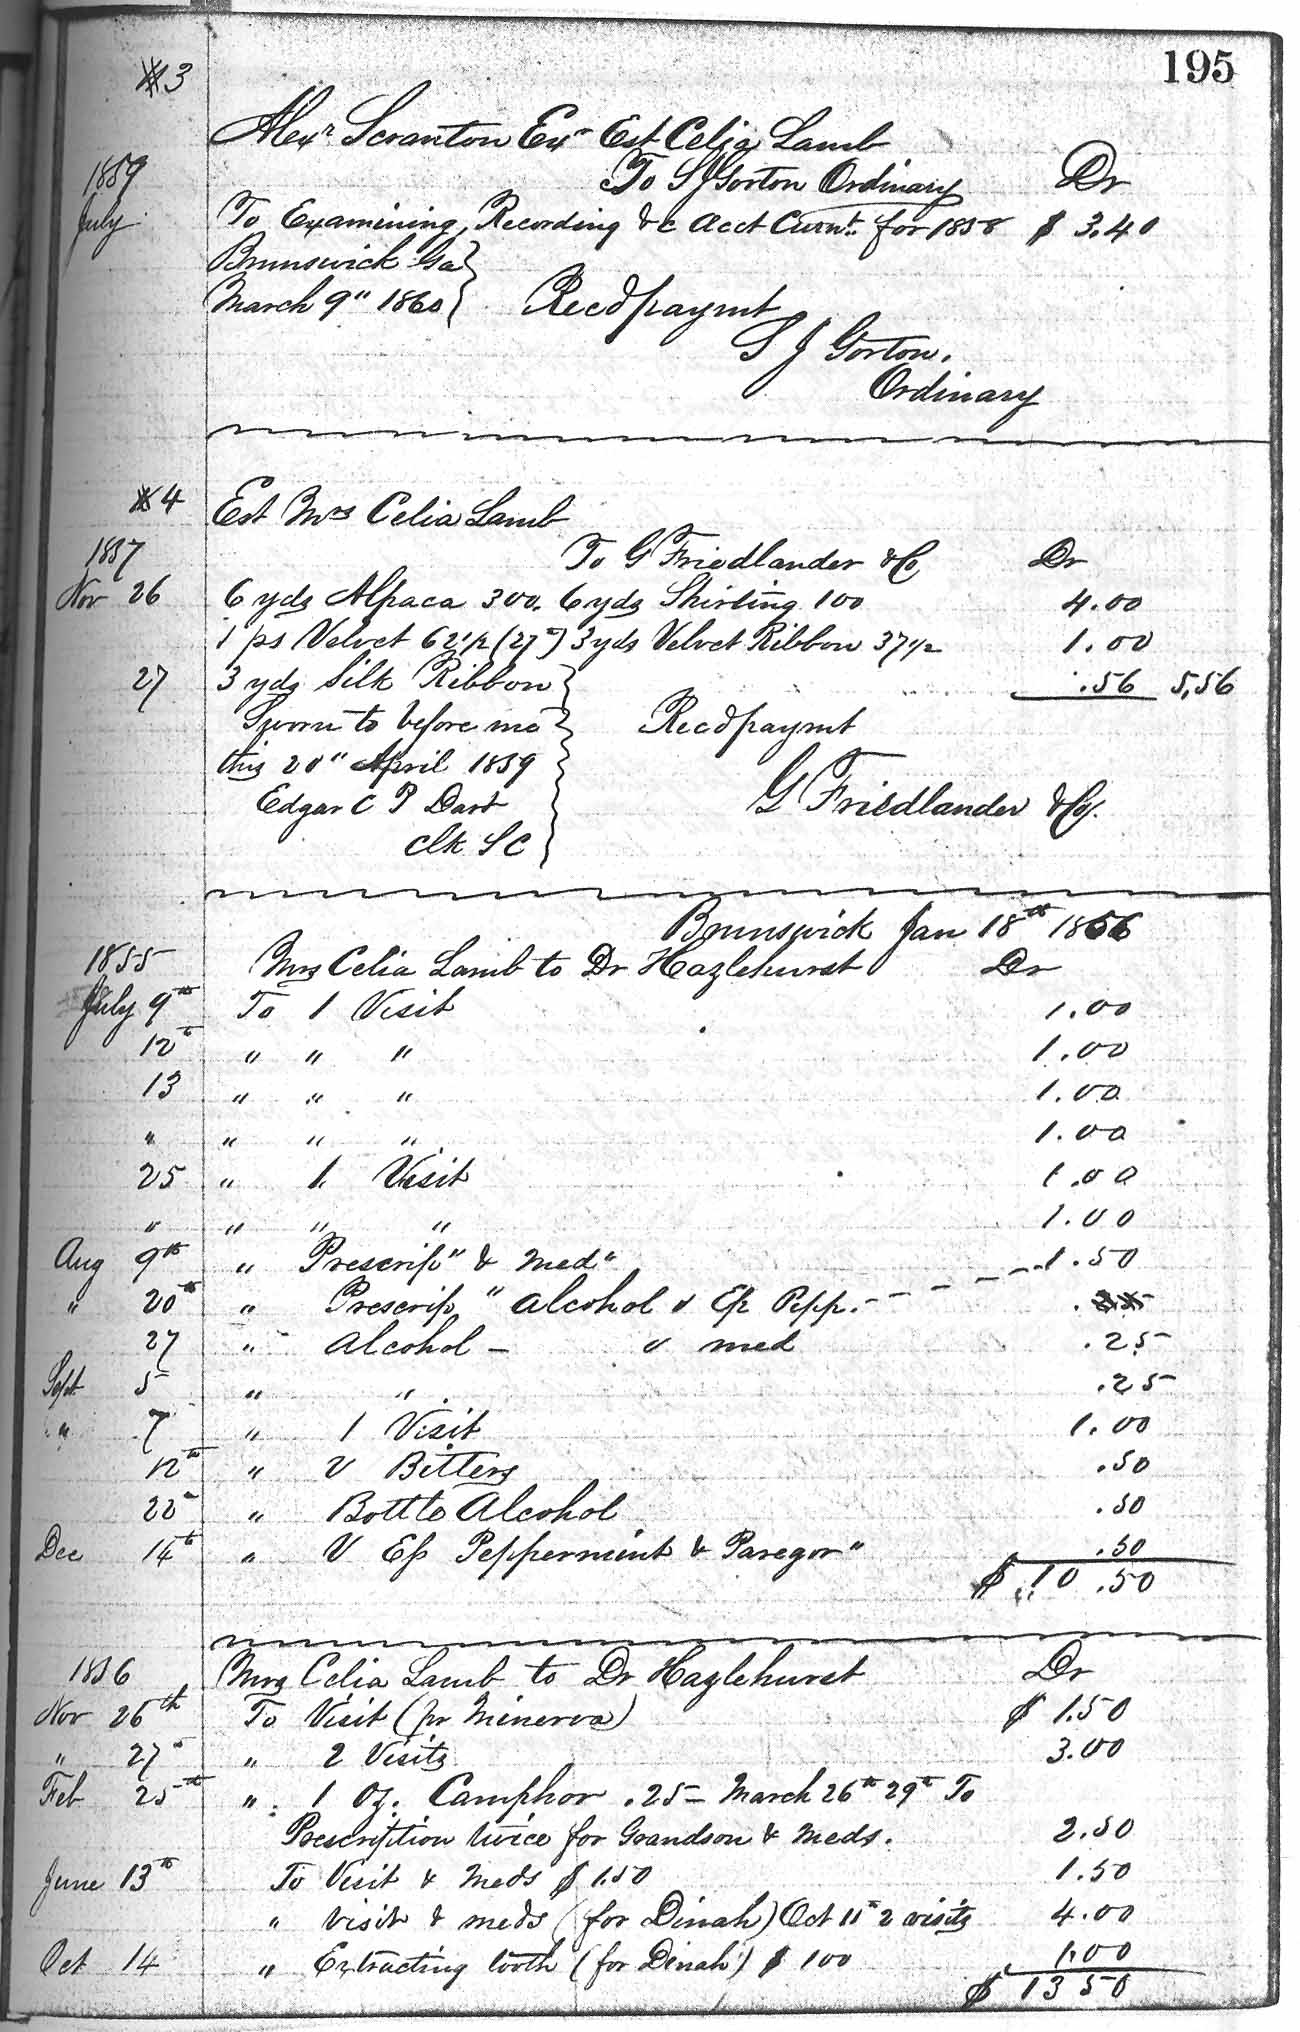 195
#3
Alexr Scranton Exr Est Celia Lamb
1859 To S J Gorton Ordinary Dr
July To Examining, Recording &c Acct Curnt. for 1858 $ 3.40
Brunswick Ga
March 9" 1860 } Recd paymt
S J Gorton.
Ordinary
#4 Est Mrs Celia Lamb
1857 To G Friedlander & Co Dr
Nov 26 6 yds Alpaca 300. 6 yds Shirting 100 4.00
1 ps Velvet 62 1/2 (27") 3 yds Velvet Ribbon 37 1/2 1.00
27 3 yds Silk Ribbon } .56 5,56
Sworn to before me } Recd paymt
this 20" April 1859
Edgar C P Dart G Friedlander & Co.
Clk S C
Brunswick Jan 18th 1856
1855 Mrs Celia Lamb to Dr Hazlehurst Dr
July 9th To 1 Visit 1.00
12th " " " 1.00
13 " " " 1.00
" " " " 1.00
25 " 1 Visit 1.00
" " " " 1.00
Aug 9th " Prescrip" & med" 1.50
" 20th " Prescrip" Alcohol & Ep Pepp. - - - -
27 " Alcohol - v med .25
Sept 5 " " .25
" 7 " 1 Visit 1.00
12th " V Bitters .50
22" " Bottle Alcohol .50
Dec 14th " V Ep Peppermint & Paregor" .50
$ 10.50
1856 Mrs Celia Lamb to Dr Hazlehurst Dr
Nov 26th To Visit (pr Minerva) $ 1.50
" 27" " 2 Visits 3.00
Feb 25th " 1 Oz. Camphor .25 - March 26th 29th To
Prescription twice for Grandson & Meds. 2.50
June 13th To Visit & Meds $ 1.50 1.50
" Visit & meds (for Dinah) Oct 11th 2 visits 4.00
Oct 14 " Extracting tooth (for Dinah) $ 100 1.00
$ 13 50